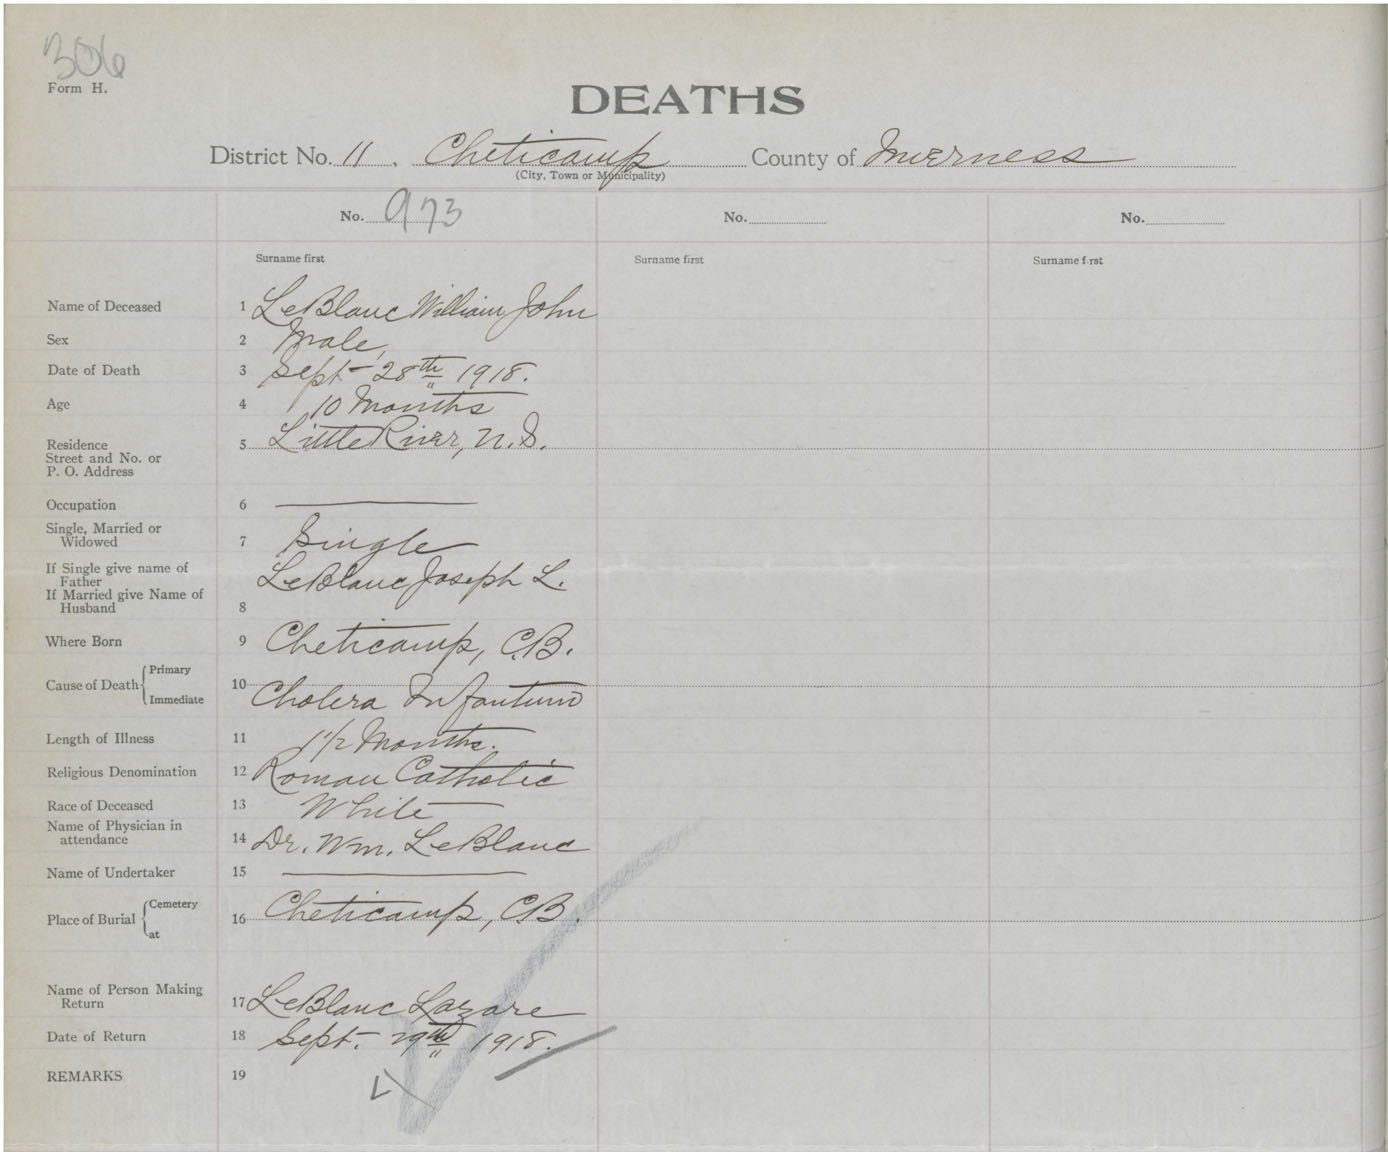 306
Form H.
DEATHS
District No. 11. Cheticamp County of Inverness
(City, Town or Municipality)
No. 973 No. No.
Surname first Surname first Surname first
Name of Deceased 1 LeBlanc William John
Sex 2 Male,
Date of Death 3 Sept- 28th 1918.
Age 4 10 Months
Residence 5 Little River, N.S.
Street and No. or
P. O. Address
Occupation 6
Single, Married or
Widowed 7 Single
If Single give name of LeBlanc Joseph L.
Father
If Married give Name of
Husband 8
Where Born 9 Cheticamp, C.B.
Primary
Cause of Death 10 Cholera Infantum
Immediate
Length of Illness 11 1 1/2 Months.
Religious Denomination 12 Roman Catholic
Race of Deceased 13 White
Name of Physician in
attendance 14 Dr. Wm. LeBlanc
Name of Undertaker 15
Cemetery
Place of Burial 16 Cheticamp, C.B.
at
Name of Person Making
Return 17 LeBlanc Lazare
Date of Return 18 Sept. 29th 1918.
REMARKS 19